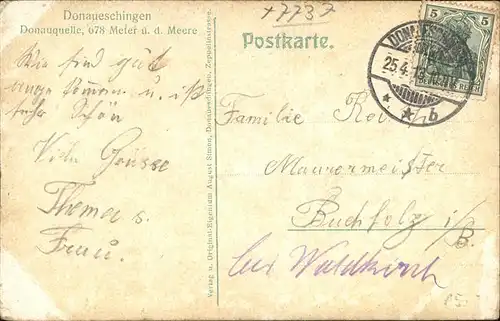 Donaueschingen
Donauquelle, 678 Meter ü. d. Meere
+7737
Postkarte.
5 5
DONAUESCHINGEN
25.4.
* * b
REICH
Wir sind gut
angekommen u. ist
sehr schön
Viele Grüsse
Thoma u.
Frau.
Verlag u. Original-Eigentum August Simon, Donaueschingen, Zeppelinstraße.
Familie
Maurermeister
Buchholz i/B.
bei Waldkirch